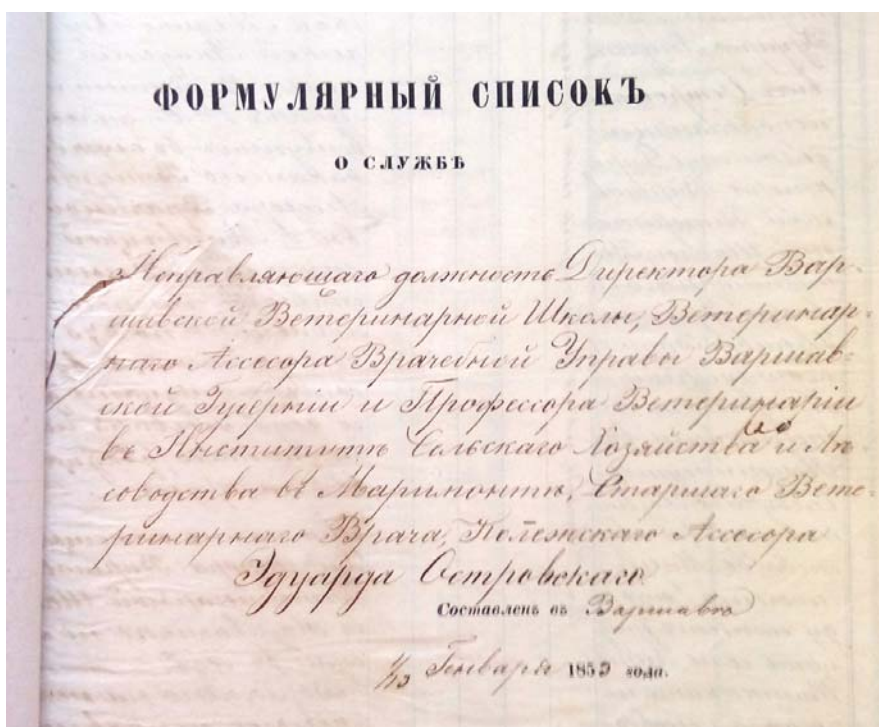 ФОРМУЛЯРНЫЙ СПИСОКЪ
О СЛУЖБѢ
Исправляющаго должность Директора Вар-
шавской Ветеринарной Школы, Ветеринар-
наго Ассесора Врачебной Управы Варшав-
ской Губерніи и Профессора Ветеринаріи
въ Институтѣ Сельскаго Хозяйства и Лѣ-
соводства въ Маримонтѣ, Старшаго Вете-
ринарнаго Врача, Коллежскаго Ассесора
Эдуарда Островскаго
Составленъ въ Варшавѣ
1/13 Генваря 1853 года.